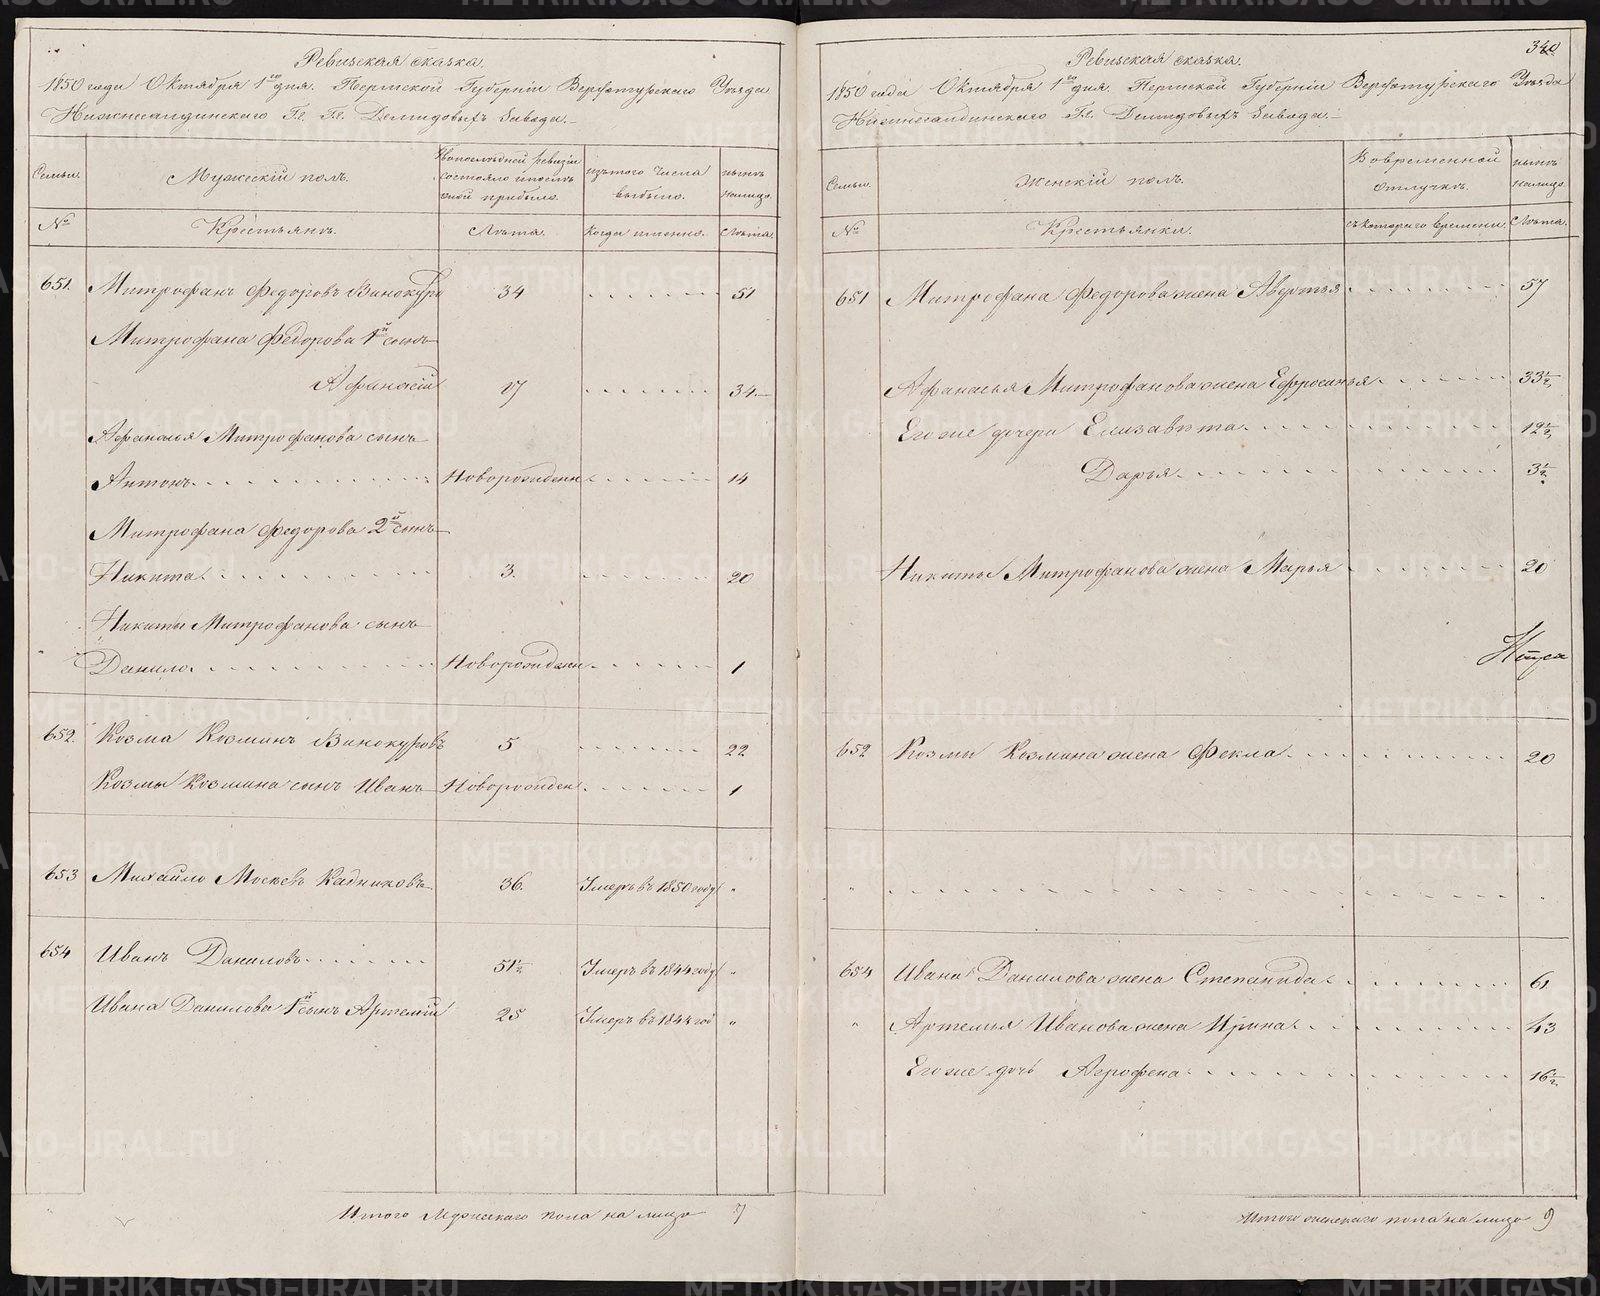 Ревизская сказка.
1850 года Октября 1го дня. Пермской Губернiи Верхотурскаго Уѣзда
Нижнесалдинскаго Гг. Гг. Демидовыхъ Завода.
Семьи.
Мужескiй полъ.
По последней ревизiи состояло и после оной прибыло.
изъ того числа выбыло.
нынѣ на лицо.
№
Крестьянъ.
Лѣта.
Когда именно.
Лѣта.
651. Митрофанъ Федоровъ Винокуро 34 51
Митрофана Федорова 1й сынъ
Афанасiй 17 34
Афанасья Митрофанова сынъ
Антонъ Новорожденн 14
Митрофана Федорова 2й сынъ
Никита 3. 20
Никиты Митрофанова сынъ
Данило Новорожденн 1
652. Козма Козминъ Винокуровъ 5 22
Козмы Козмина сынъ Иванъ Новорожден 1
653 Михайло Кадниковъ 36. Умеръ въ 1850 году "
654 Иванъ Даниловъ 51½ Умеръ въ 1844 году "
Ивана Данилова 1й сынъ Артемiй 25 Умеръ въ 1844 год "
Итого Мужескаго пола на лицо 7
340
Ревизская сказка.
1850 года Октября 1го дня. Пермской Губернiи Верхотурскаго Уѣзда
Нижнесалдинскаго Гг. Демидовыхъ Завода.
Семьи.
Женскiй полъ.
Во временной отлучкѣ.
нынѣ налицо.
№
Крестьянки.
съ котораго времени.
Лѣта.
651 Митрофана Федорова жена Авдотья 57
Афанасья Митрофанова жена Ефросинья 33½
Его же дочери Елизавѣта 12½
Дарья 3½
Никиты Митрофанова жена Марья 20
652 Козмы Козмина жена Фекла 20
" "
654 Ивана Данилова жена Степанида 61
" Артемья Иванова жена Ирина 43
Его же дочь Агрофена 16½
Итого женскаго пола на лицо 9
METRIKI.GASO-URAL.RU